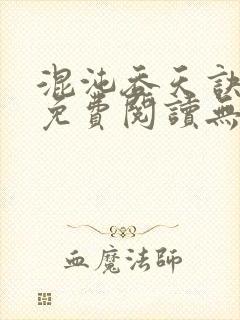 混沌吞天訣
免費閱讀無
血魔法師